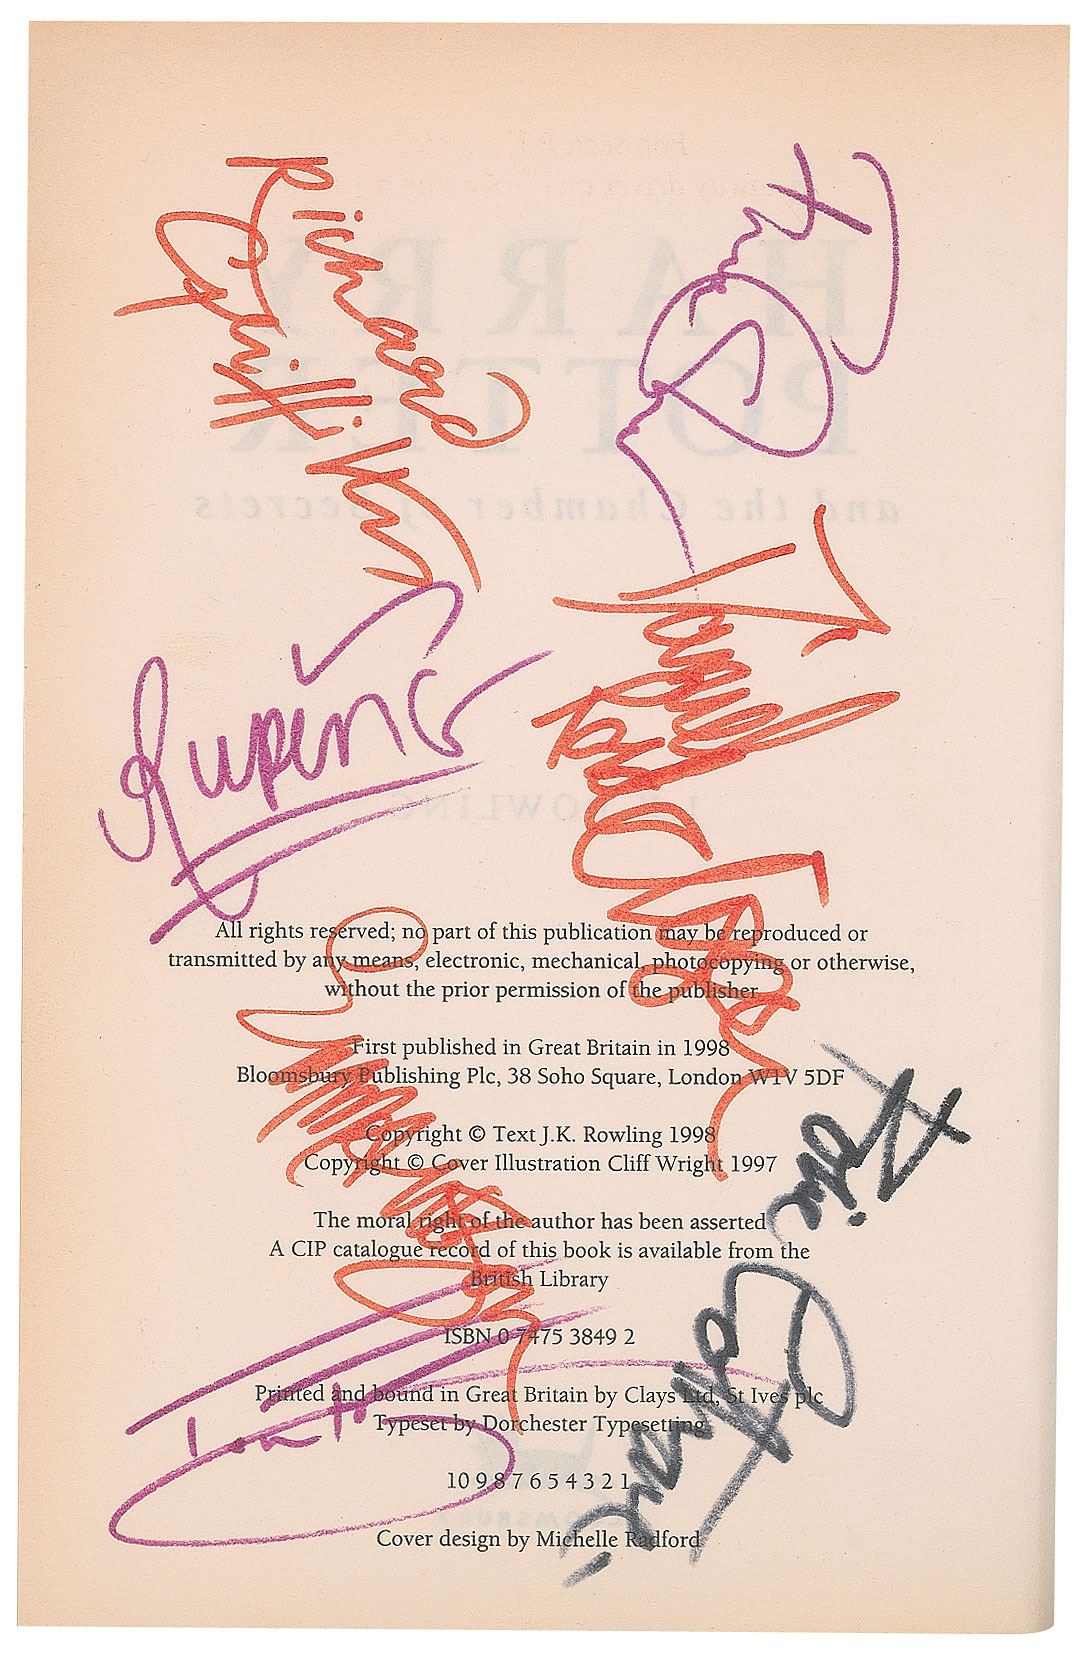 Richard
Griffiths
Rupert G
All rights reserved; no part of this publication may be reproduced or
transmitted by any means, electronic, mechanical, photocopying or otherwise,
without the prior permission of the publisher
First published in Great Britain in 1998
Bloomsbury Publishing Plc, 38 Soho Square, London W1V 5DF
Copyright © Text J.K. Rowling 1998
Copyright © Cover Illustration Cliff Wright 1997
The moral right of the author has been asserted
A CIP catalogue record of this book is available from the
British Library
ISBN 0 7475 3849 2
Printed and bound in Great Britain by Clays Ltd, St Ives plc
Typeset by Dorchester Typesetting
10 9 8 7 6 5 4 3 2 1
Cover design by Michelle Radford
Robbie
Coltrane
HARRY
POTTER
and the Chamber of Secrets